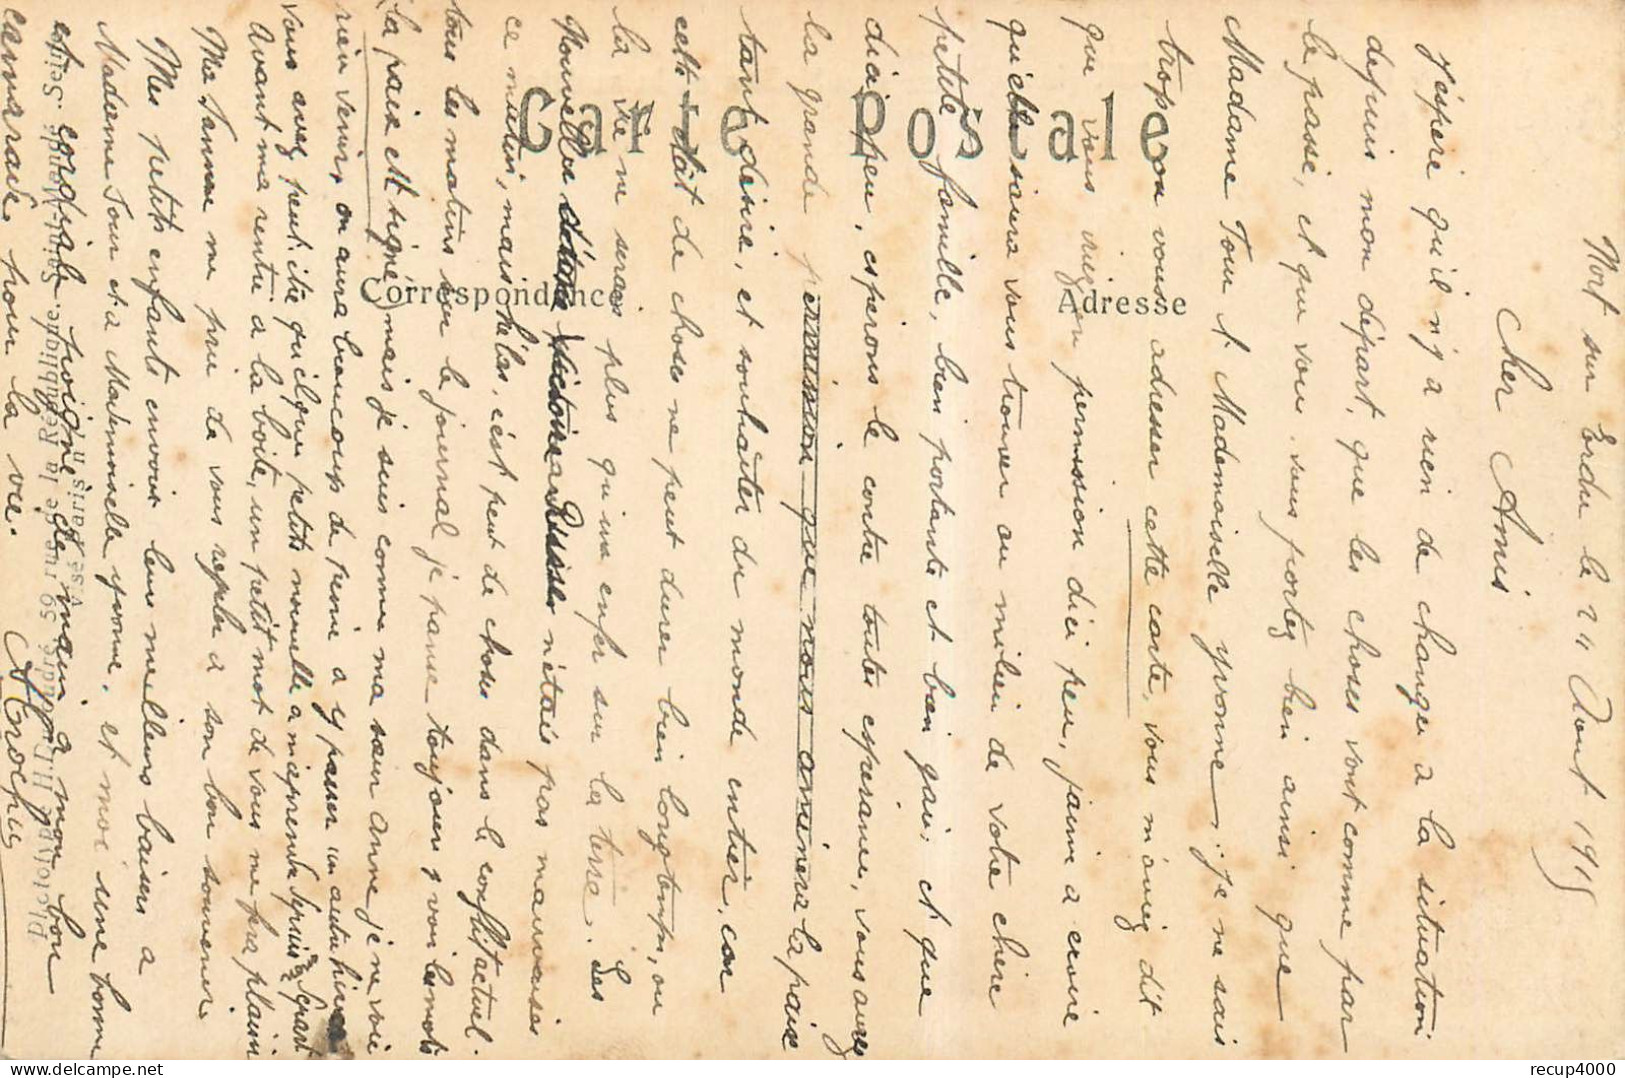 Nort sur Erdre le 24 Aout 1915
Cher Amis
J'espère qu'il n'y a rien de changer a la situation
depuis mon départ, que les choses vont comme par
le passé, et que vous vous portez bien ainsi que
Madame Tour & Mademoiselle Yvonne, je ne sais
trop ou vous adresser cette carte, vous m'aviez dit
que vous auriez permission d'ici peu, j'aime a croire
qu'elle saura vous trouver au milieu de votre chère
petite famille, bien portante et bien gaie; et que
d'ici peu, esperons le contre toutes esperance, vous aurez
la grande permission que nous amènera la paix
tant désiré, et souhaiter du monde entier, car
cette état de choses ne peut durer bien longtemps, ou
la vie ne serais plus qu'un enfer sur la terre. Les
Nouvelles d'étre Victoire Russes n'étais pas mauvaises
ce matin, mais hélas, c'est peut de choses dans le conflit actuel.
tous les matins sur le journal je pense toujours y voir les mots
(la paix est signé) mais je suis comme ma sœur Anne je ne voie
rien venir, on aura beaucoup de peine a y passer un autre hiver
vous avez peut être quelques petits nouvelle a m'aprendre depuis
Avant ma rentré a la boite, un petit mot de vous me fera plaisir
Ma Femme me prie de vous rappeler a son bon souvenir
Mes petits enfants envois leurs meilleurs baisers a
Madame Tour et a Mademoiselle Yvonne, et moi une bonne
et cordiale poignée de main a mon bon
camarade pour la vie.
Carte Postale
Correspondance
Adresse